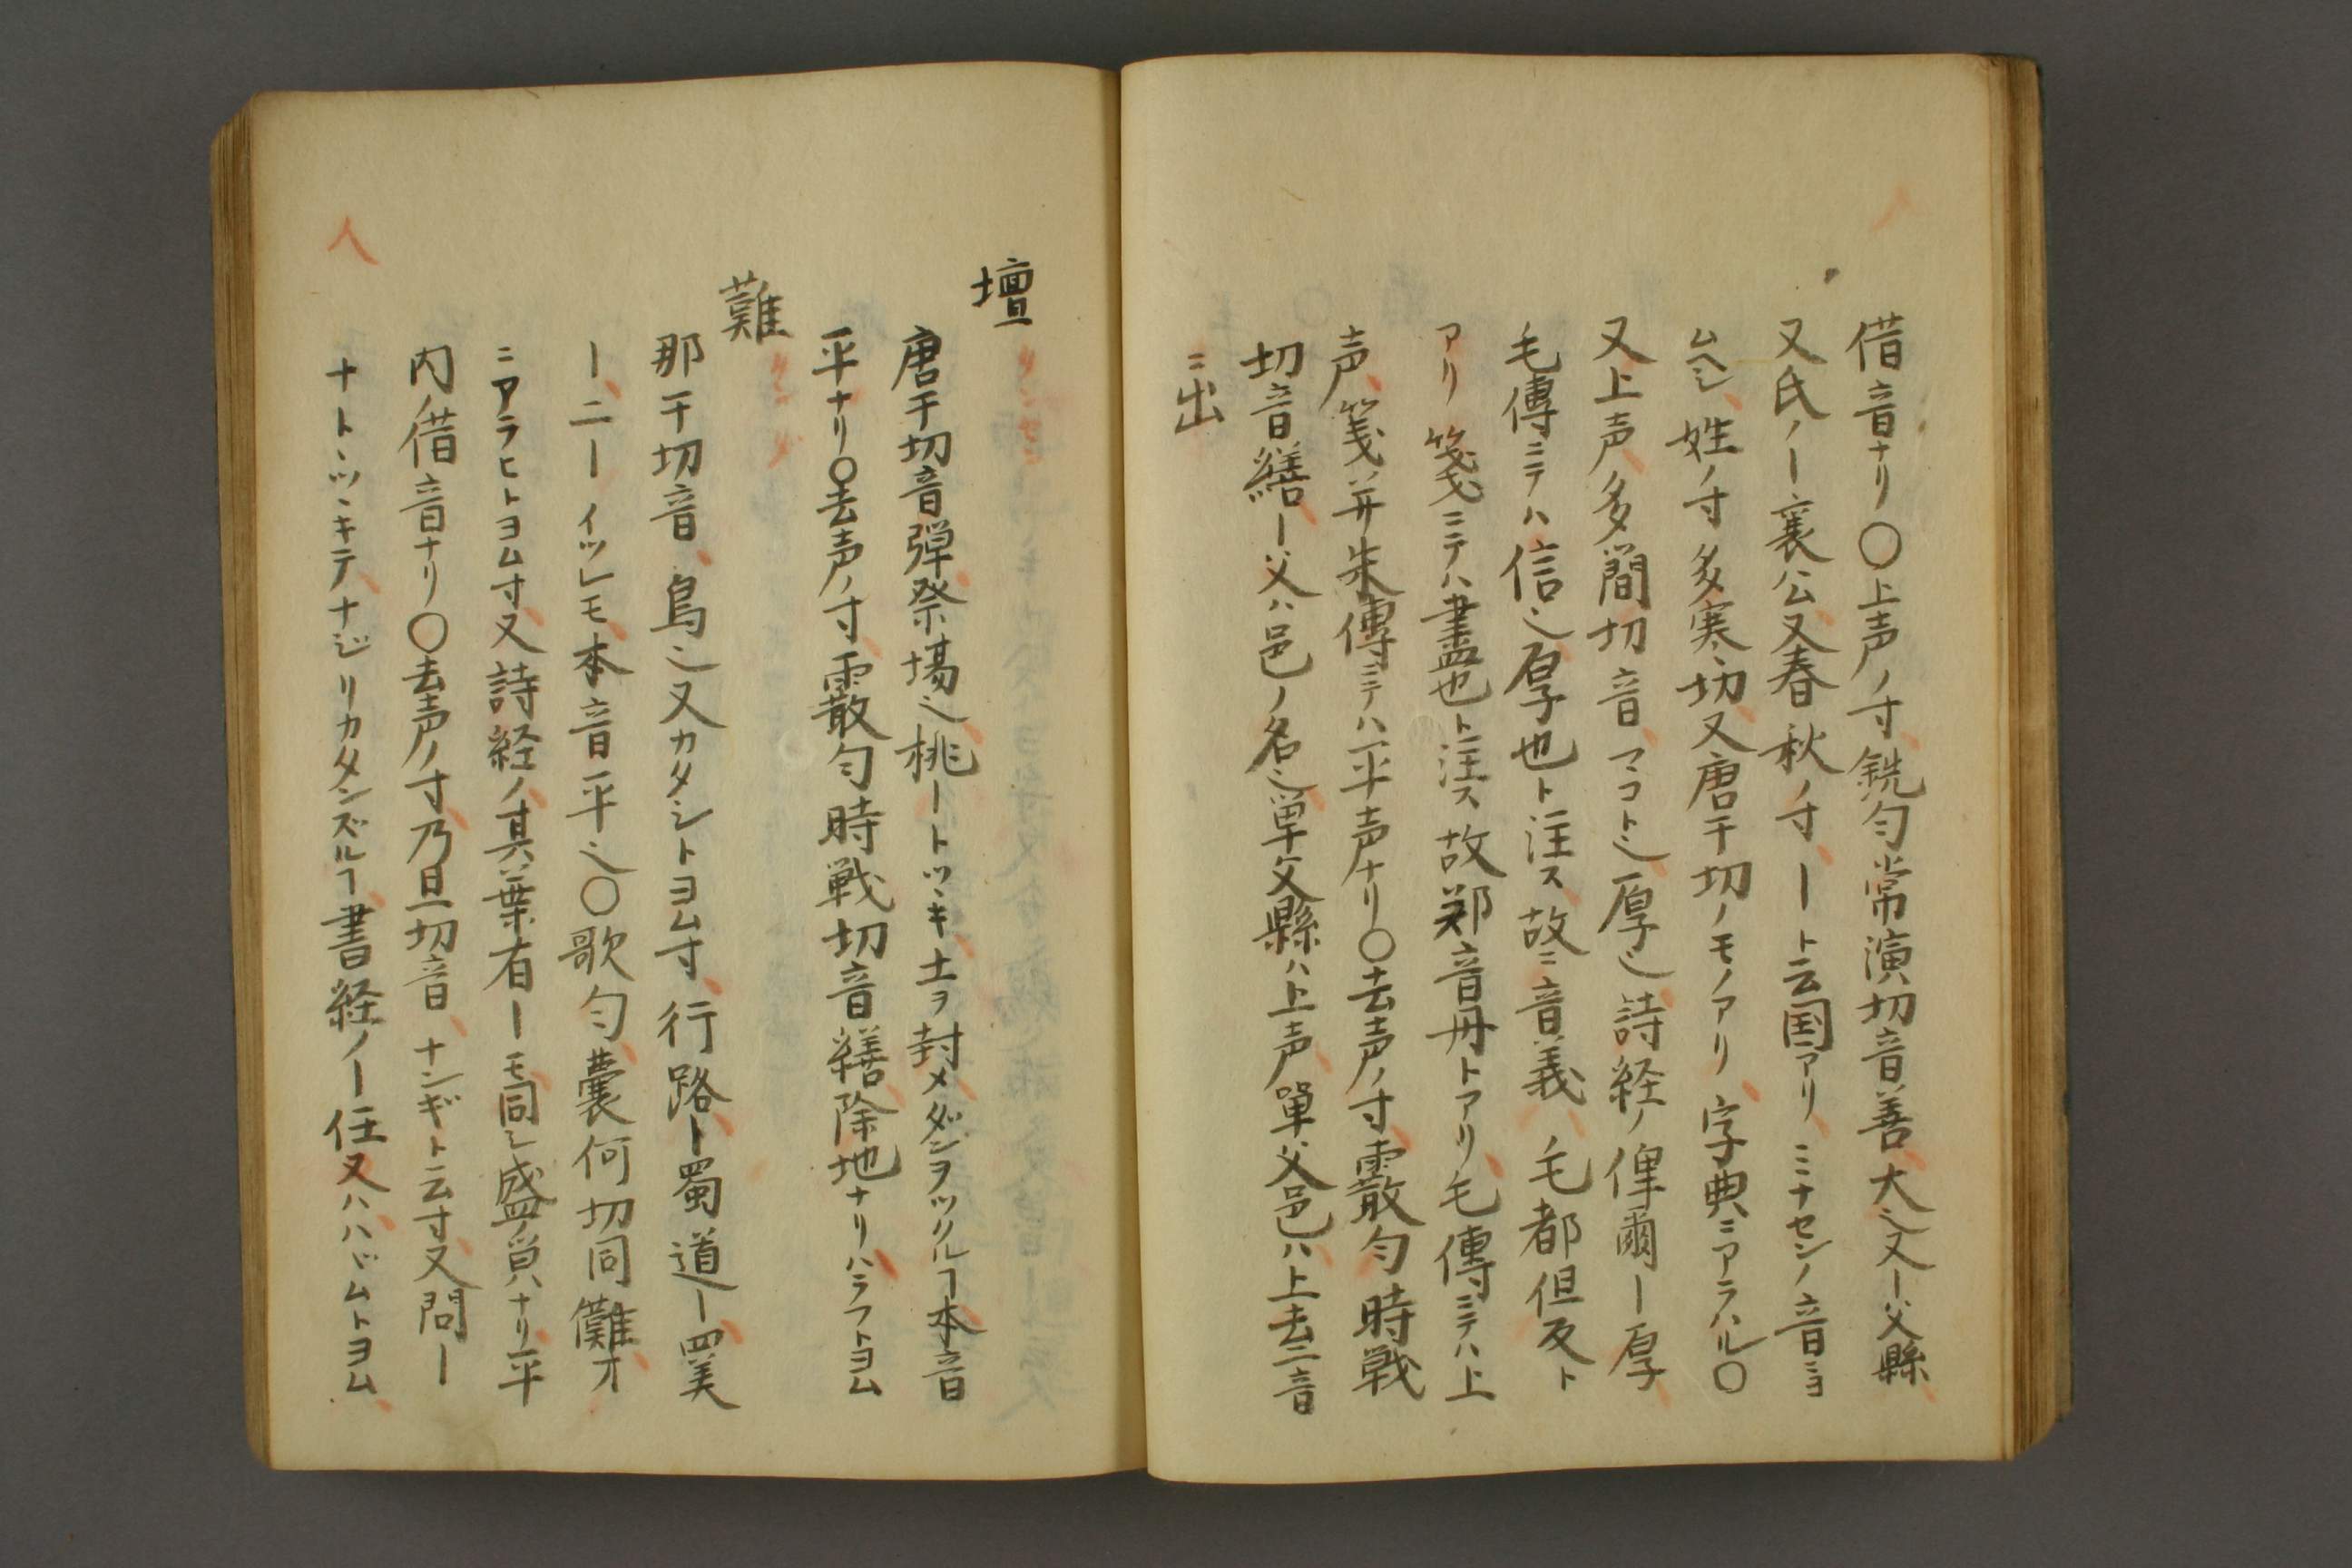 借音ナリ〇上声ノ寸銑匀常演切音善大也又ー父縣
又氏ノー襄公又春秋ノ寸ート云国アリミナセンノ音ニヨ
ムヘシ姓ノ寸多寒切又唐干切ノモノアリ字典ニアラハル〇
又上声ノ多簡切音マコト也厚也詩経ノ俾爾ー厚
毛傳ニテハ信也厚也ト注ス故ニ音義毛都但反ト
アリ箋ニテハ盡也ト注ス故郑音丹トアリ毛傳ニテハ上
声箋并朱傳ニテハ平声ナリ〇去声ノ寸霰匀時戦
切音繕ー父ハ邑ノ名也単父縣ハ上声單父邑ハ上去二音
ニ出
壇
唐干切音彈祭場也桃ートツキ土ヲ封メダンヲツクルヿ本音
平ナリ〇去声ノ寸霰匀時戦切音繕除地ナリハラフトヨム
難
那干切音鳥也又カタシトヨム寸行路ー蜀道ー四美
ー二ーイツレモ本音平也〇歌匀嚢何切同儺オ
ニアラヒトヨム寸又詩経ノ其葉有ーモ同シ盛ノ皃ナリ平
内ノ借音ナリ〇去声ノ寸乃旦切音ナンギト云寸又問ー
ナトトツヽキテナジリカタンズルヿ書経ノー任又ハハヾムトヨム